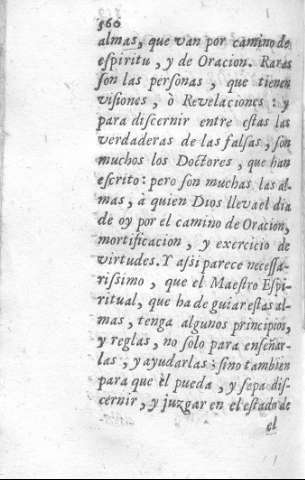 560
almas, que van por camino de
espiritu, y de Oracion. Raras
son las personas, que tienen
visiones, ò Revelaciones: y
para discernir entre estas las
verdaderas de las falsas, son
muchos los Doctores, que han
escrito: pero son muchas las al-
mas, à quien Dios lleva el dia
de oy por el camino de Oracion,
mortificacion, y exercicio de
virtudes. Y assi parece necessa-
rissimo, que el Maestro Espi-
ritual, que ha de guiar estas al-
mas, tenga algunos principios,
y reglas, no solo para enseñar-
las, y ayudarlas; sino tambien
para que èl pueda, y sepa dis-
cernir, y juzgar en el estado de
el